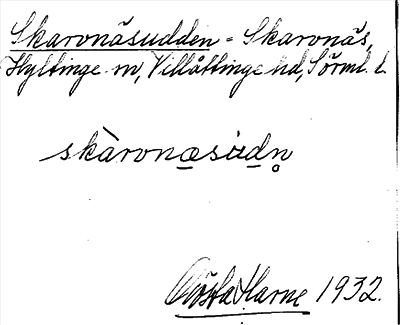 Skaronäsudden - Skaronäs,
Hyltinge sn, Villåttinge hd, Sörml. l.
skàronæsùdn̥
Gösta Harne 1932.